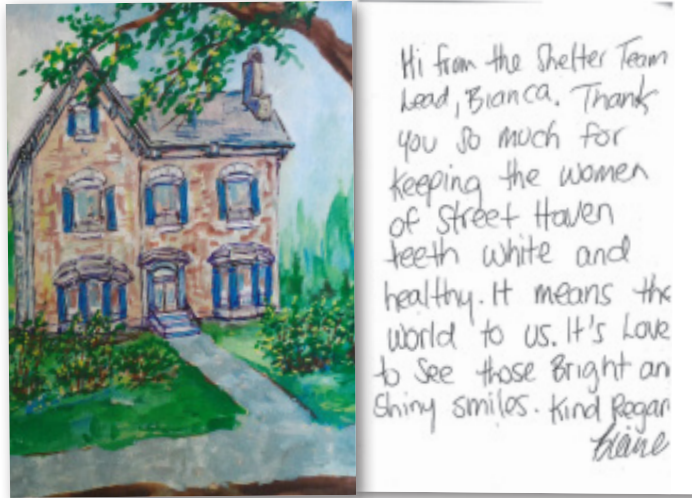 Hi from the Shelter Team
Lead, Bianca. Thank
you so much for
keeping the women
of Street Haven
teeth white and
healthy. It means the
world to us. It's Love
to See those Bright an
Shiny smiles. Kind Regar